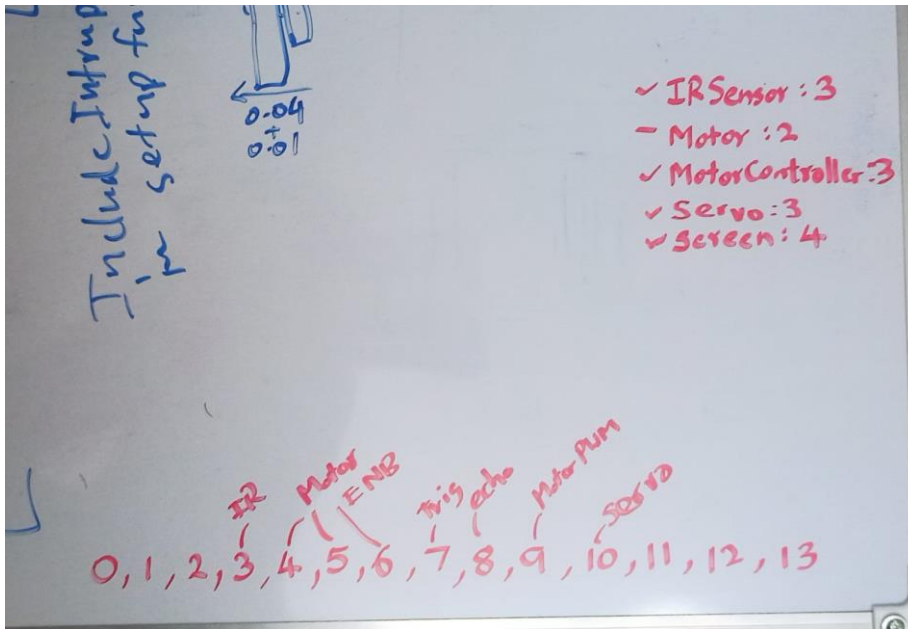 Include Intrup
in setup fu
0.04
+
0.01
✓ IRSensor : 3
- Motor : 2
✓ MotorController:3
✓ Servo:3
✓ screen: 4
IR Motor ENB Trig echo Motor PWM Servo
0, 1, 2, 3, 4, 5, 6, 7, 8, 9, 10, 11, 12, 13